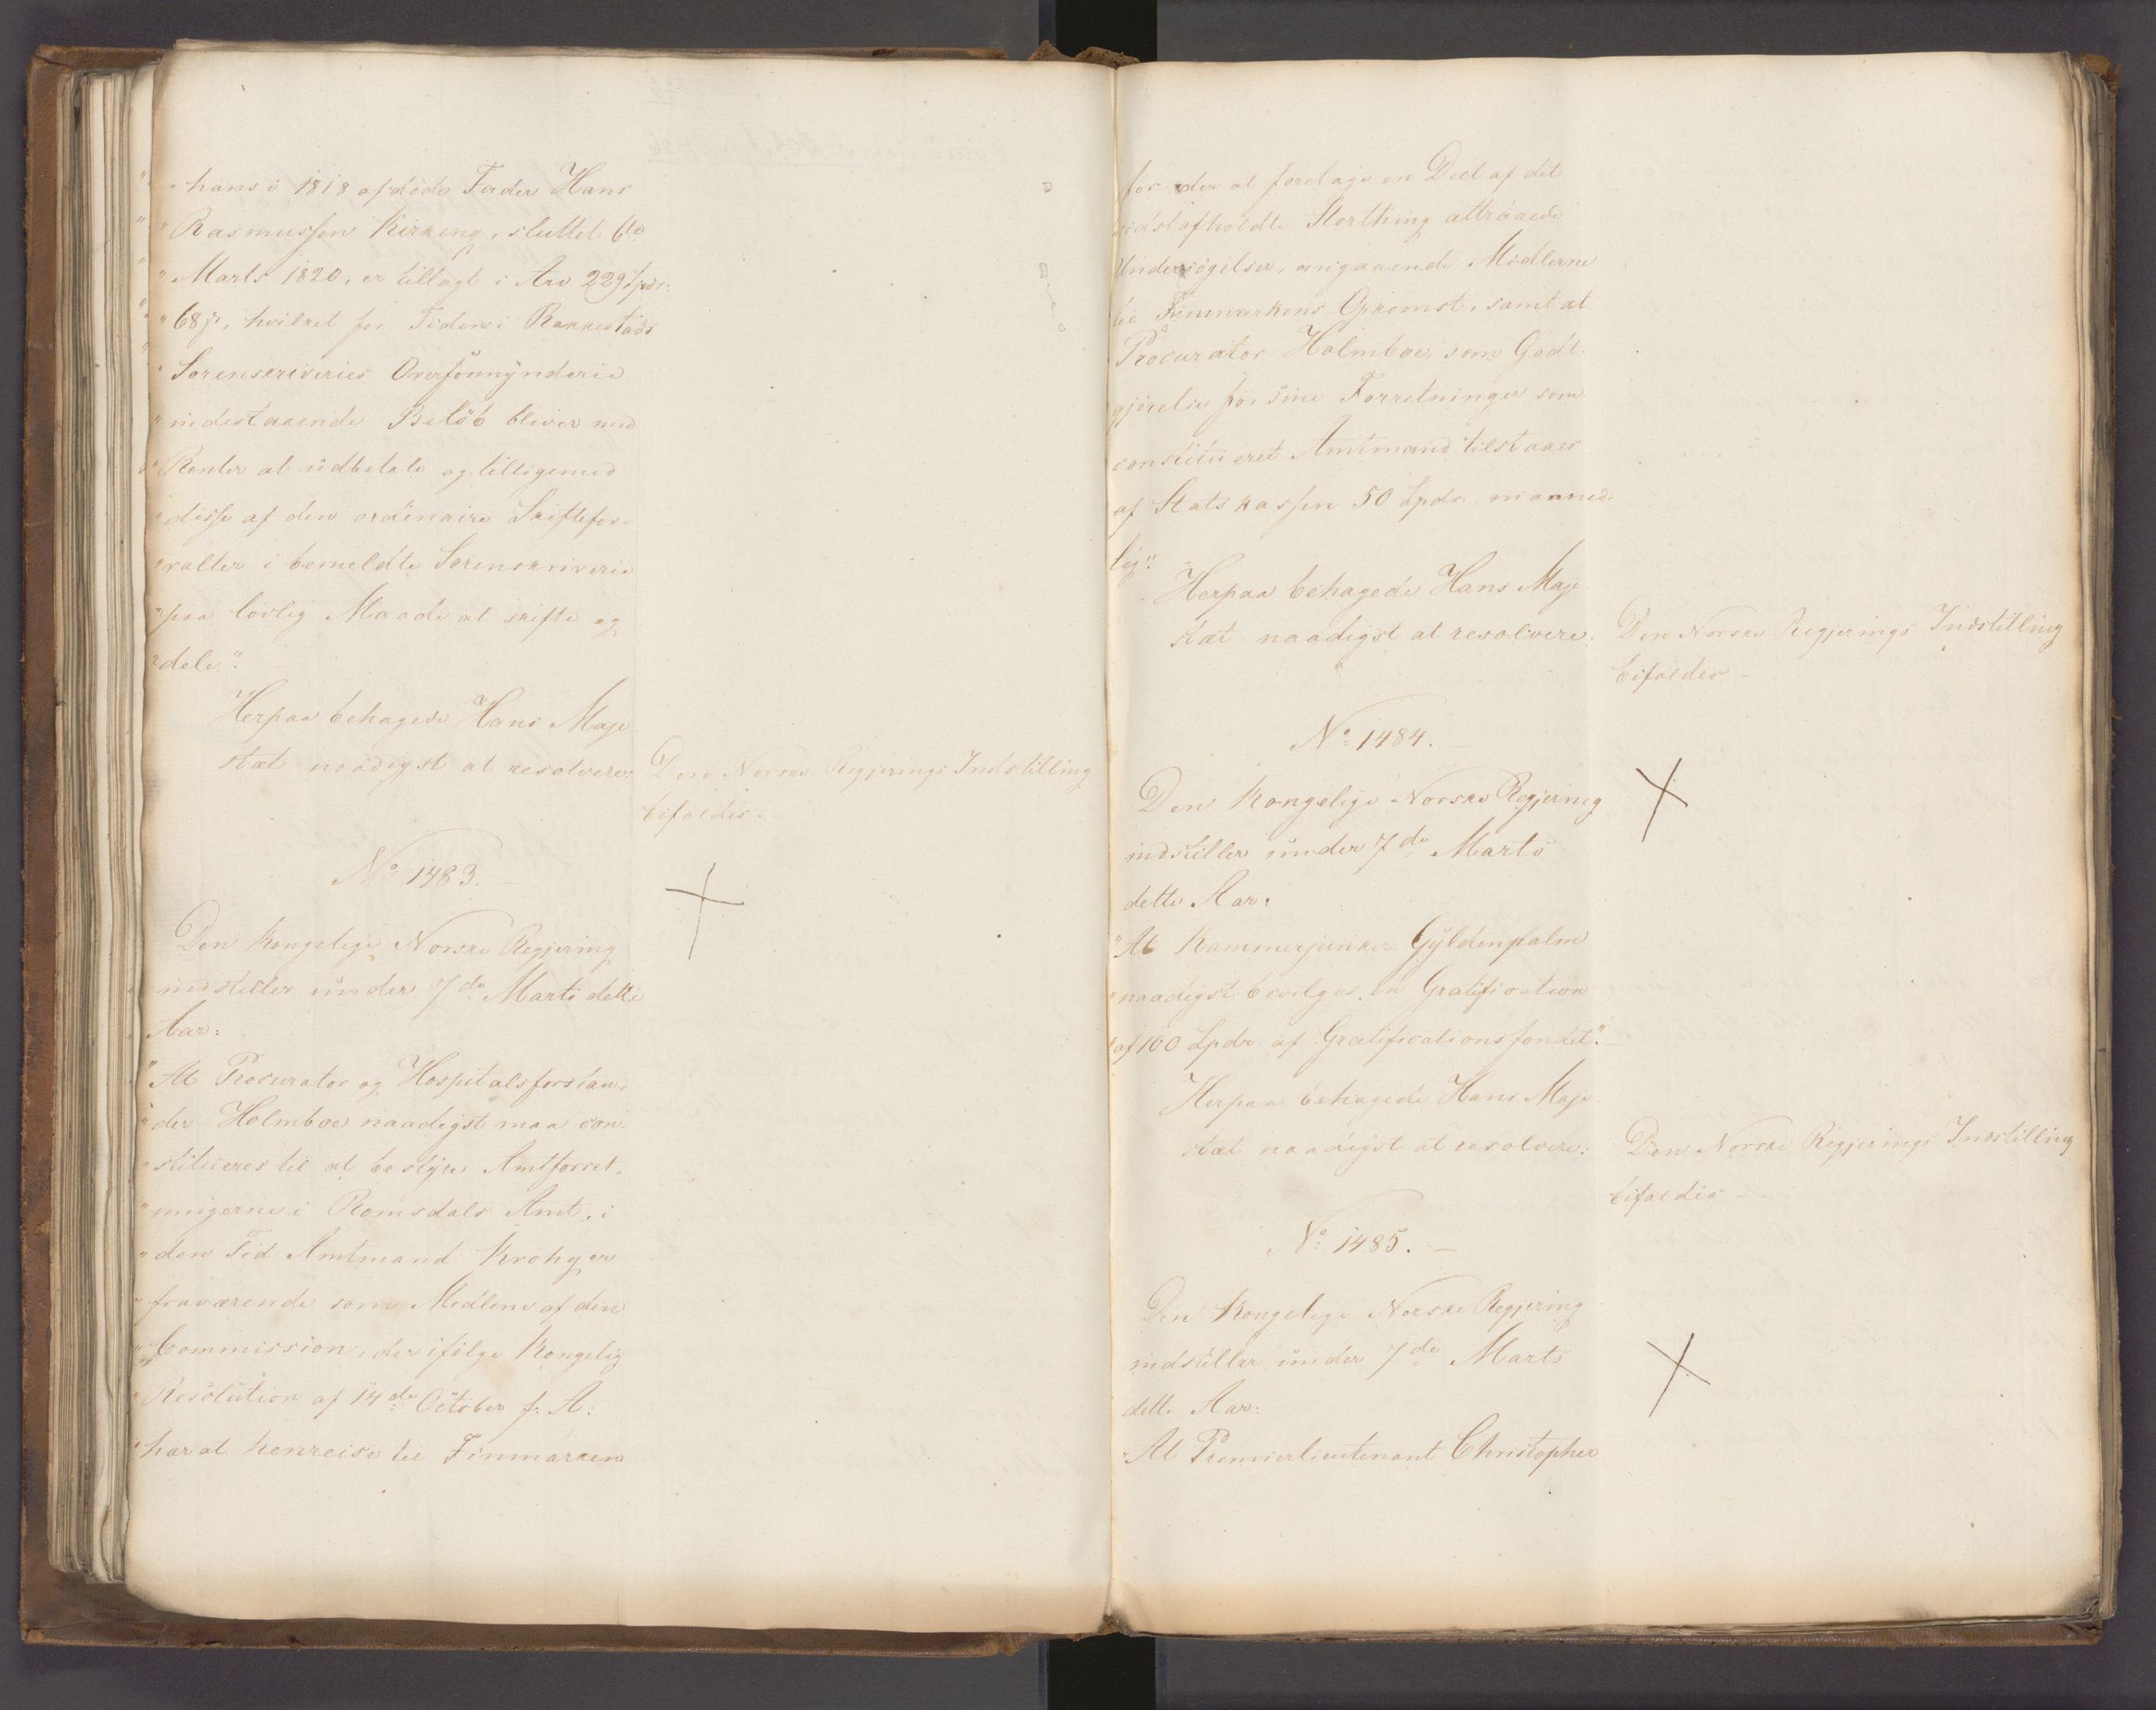 "hans i 1818 afdöde Fader Hans
"Rasmussen Kirkeng, sluttet 6te
"Marts 1820, er tillagt i Arv 229 Spdr:
"68 s, hvilket for Tiden i Rakkestads
"Sorenskriveries Overformynderie
"indestaaende Belöb bliver med
"Renter at udbetale og tilligemed
"disse af den ordinaire Skiftefor-
"valter i bemeldte Sorenskriverie
"paa lovlig Maade at skifte og
"dele".
Herpaa behagede Hans Maje
stæt naadigst at resolvere:
Den Norske Regjerings Indstilling
bifaldes.
No 1483.
Den Kongelige Norske Regjering
indstiller under 7de Marts dette
Aar:
"At Procurator og Hospitalsforstan-
"der Holmboe naadigst maa con-
"stitueres til at bestyre Amtforret-
"ningerne i Romsdals Amt, i
"den Tid Amtmand Krohg er
"fraværende som Medlem af den
"Commission, der ifölge Kongelig
"Resolution af 14de October f: A:
"har at henreise til Finmarken
for der at foretage en Deel af det
sidstafholdte Storthing attraaede
Undersögelser, angaaende Midlerne
til Finmarkens Opkomst, samt at
Procurator Holmboe, som Godt-
gjörelse for sine Forretninger som
constitueret Amtmand tilstaaes
af Statskassen 50 Spdr. maaned-
lig".
Herpaa behagede Hans Maje
stæt naadigst at resolvere:
Den Norske Regjerings Indstilling
bifaldes
No 1484.
Den Kongelige Norske Regjering
indstiller under 7de Marts
dette Aar:
"At Kammerjunker Gyldenpalm
"naadigst bevilges en Gratification
"af 100 Spdr af Gratificationsfondet".
Herpaa behagede Hans Maje
stæt naadigst at resolvere:
Den Norske Regjerings Indstilling
bifaldes
No 1485.
Den Kongelige Norske Regjering
indstiller under 7de Marts
dette Aar:
"At Premierlieutenant Christopher